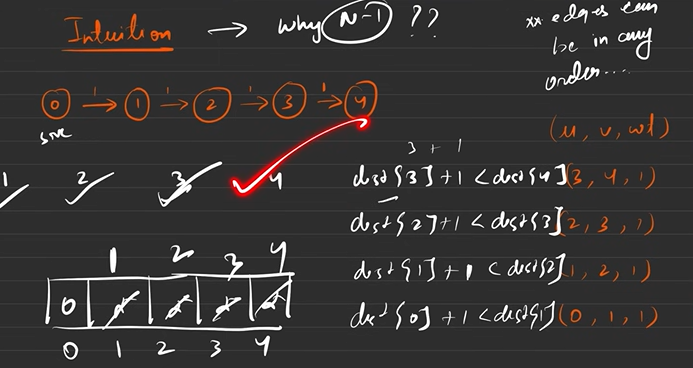 Intuition → Why N-1 ??
** edges can
be in any
order....
1 1 1 1
0 → 1 → 2 → 3 → 4
src
(u, v, wt)
3 + 1
1 2 3 4
dist[3] + 1 < dist[4] (3, 4, 1)
dist[2] + 1 < dist[3] (2, 3, 1)
dist[1] + 1 < dist[2] (1, 2, 1)
dist[0] + 1 < dist[1] (0, 1, 1)
1 2 3 4
0
0 1 2 3 4